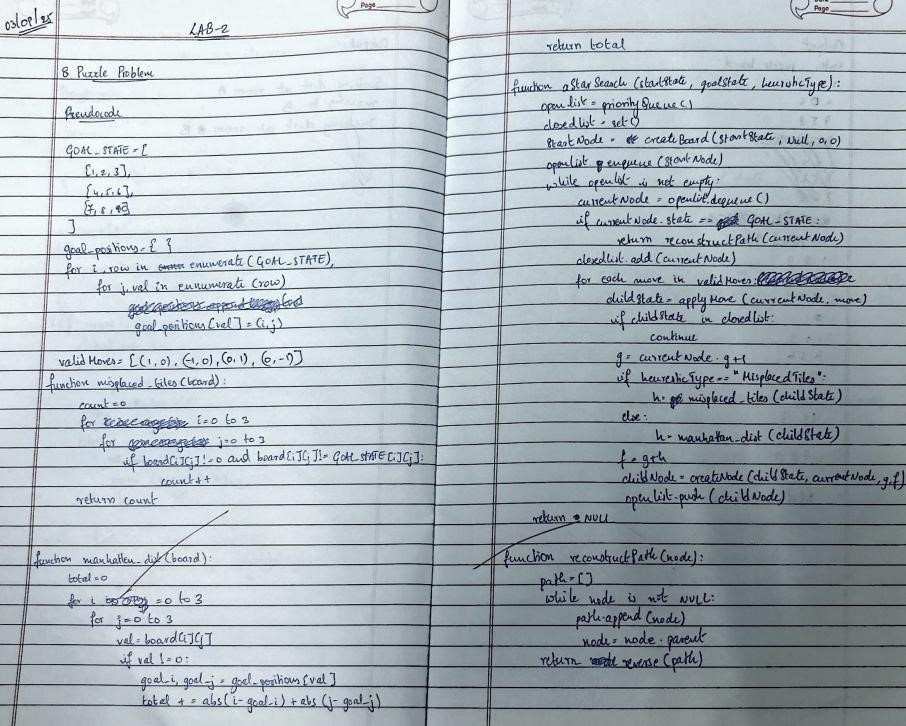 03/09/25
LAB-2
8 Puzzle Problem
Pseudocode
GOAL_STATE = [
[1, 2, 3],
[4, 5, 6],
[7, 8, 0]
]
goal_positions = { }
for i, row in enumerate (GOAL_STATE),
for j, val in enumerate (row)
goal_positions [val] = (i, j)
validMoves = [(1, 0), (-1, 0), (0, 1), (0, -1)]
function misplaced_tiles (board):
count = 0
for i = 0 to 3
for j = 0 to 3
if board[i][j] != 0 and board[i][j] != GOAL STATE [i][j]:
count ++
return count
function manhatten_dist (board):
total = 0
for i = 0 to 3
for j = 0 to 3
val = board[i][j]
if val != 0:
goal_i, goal_j = goal_positions [val]
total + = abs( i - goal_i) + abs (j - goal_j)
Page
return total
function aStarSearch (startState, goalState, heuristicType):
open list = priorityQueue ( )
closed list = set ( )
StartNode = createBoard (StartState, Null, 0, 0)
openlist enqueue (StartNode)
while openlist is not empty:
currentNode = openlist.dequeue ( )
if currentNode.state == GOAL_STATE:
return reconstructPath (currentNode)
closedlist.add (currentNode)
for each move in validMoves:
childState = applyMove (currentNode, move)
if childState in closedlist:
continue
g = currentNode.g + 1
if heurestic Type == "Misplaced Tiles":
h = misplaced_tiles (childState)
else:
h = manhattan_dist (childState)
f = g + h
childNode = createNode (childState, currentNode, g, f)
openlist.push (childNode)
return NULL
function reconstructPath (node):
path = [ ]
while node is not NULL:
path.append (node)
node = node.parent
return reverse (path)
Page